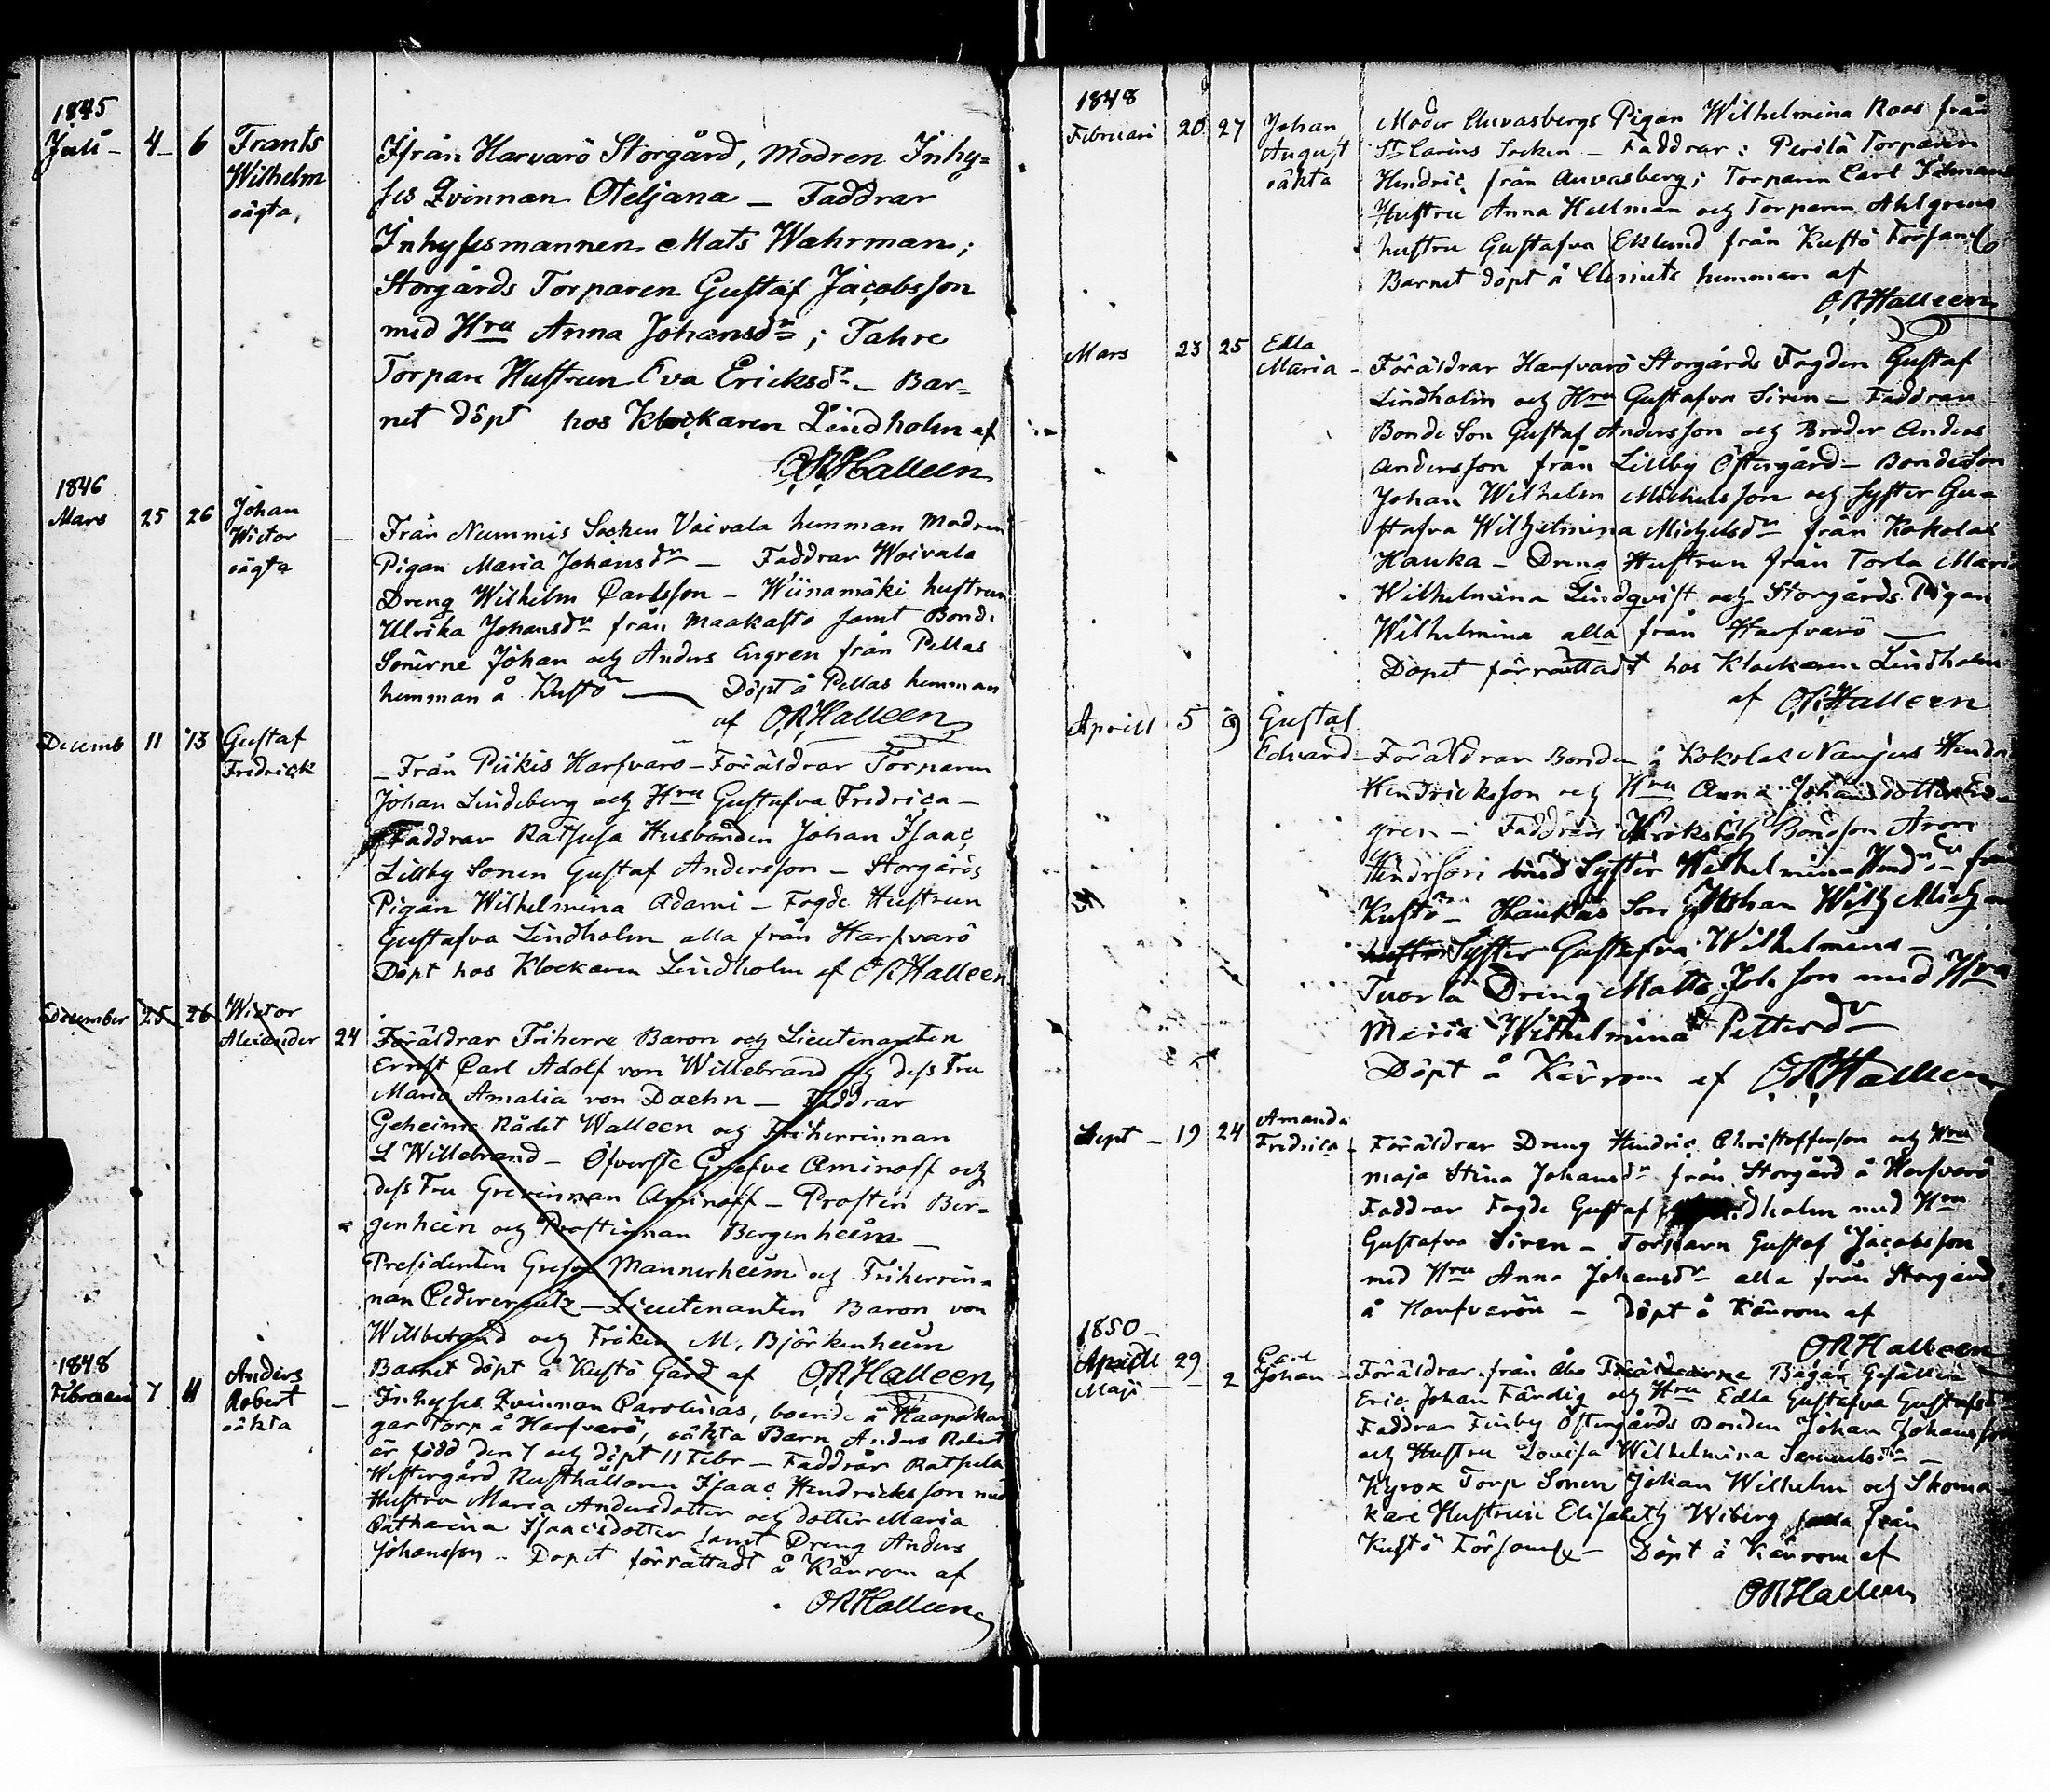 1845
Juli - 4 - 6 Frants
Wilhelm
oägta,
Ifrån Harvarö Storgård, Modren Inhy=
ses Qvinnan Oteljana - Faddrar
Inhysesmannen Mats Wahrman;
Storgårds Torparen Gustaf Jacobsson
med Hru Anna Johansdr; Tahre
Torpare Hustrun Eva Ericksdr - Bar=
net döpt hos Klockaren Lindholm af
ORHalleen
1846
Mars 25 26 Johan
Wictor
oägta
Från Nummis Socken Vaivala hemman Modren
Pigan Maria Johansdr - Faddrar Woivala
Dreng Wilhelm Carlsson - Wiinamäki hustrun
Ulrika Johansdr från Maakasto samt Bonde
Sönerne Johan och Anders från Pellas
hemman å Kustö - Döpt å Pellas hemman
af ORHalleen
Decemb 11 13 Gustaf
Fredrick
- Från Piikis Harfvarö - Föräldrar Torparen
Johan Lindeberg och Hru Gustafva Fredrica -
Faddrar Ratsusa Husbonden Johan Isaac
Lillby Sonen Gustaf Andersson - Storgårds
Pigan Wilhelmina Adami - Fogde Hustrun
Gustafva Lindholm alla från Harfvarö
Döpt hos Klockaren Lindholm af ORHalleen
December 25 26 Wictor
Alexander 24
Föräldrar Friherre Baron och Lieutenanten
Ernst Carl Adolf von Willebrand och dess Fru
Maria Amalia von Daehn - Faddrar
Geheime Rådet Walleen och Friherrinnan
L Willebrand - Öfverste Grefve Aminoff och
dess Fru Grevinnan Aminoff - Prosten Ber=
genheim och Prostinnan Bergenheim -
Presidenten Grefve Mannerheim och Friherrin=
nan Cedercreutz - Lieutenanten Baron von
Willebrand och Fröken M. Björkenheim
Barnet döpt å Kustö Gård af ORHalleen
1848
Februari 7 11 Anders
Robert
oäkta
- Inhyses Qvinnan Carolinas, boende å Haapaka
gar Torp å Harfvarö, oäkta Barn Anders Robert
är född den 7 och döpt 11 Febr - Faddrar Ratsula
Westergård Rusthållaren Isaac Hendricksson med
Hustru Maria Andersdotter och dotter Maria
Catharina Isaacsdotter samt Dreng Anders
Johansson - Dopet förrättadt å Kärrom af
ORHalleen
1848
Februari 20 27 Johan
August
oäkta
Moder Auvasbergs Pigan Wilhelmina Roos från
St Carins Socken - Faddrar: Perilä Torparen
Hendric från Auvasberg; Torparen Carl
Hustru Anna Hellman och Torparen Ahlgrens
hustru Gustafva Eklund från Kustö Församl
Barnet döpt å hemman af
ORHalleen
Mars 23 25 Edla
Maria - Föräldrar Harfvarö Storgårds Fogden Gustaf
Lindholm och Hru Gustafva Siren - Faddrar
Bonde Son Gustaf Andersson och Broder Anders
Andersson från Lillby Östergård - Bonde Son
Johan Wilhelm Michelsson och Syster Gu=
stafva Wilhelmina Michelsdr från Kokolax
Hauka - Dreng Hustrun från Torla Maria
Wilhelmina Lindqvist och Storgårds Pigan
Wilhelmina alla från Harfvarö
Dopet förrättadt hos Klockaren Lindholm
af ORHalleen
Aprill 5 9 Gustaf
Edvard - Föräldrar Bonden å Kokolax Nanjus
Hendricksson och Hru Anna Johansdotter
gren - Faddrar Bondson Aron
med Syster Wilhelmina från
Kustö - Haukas Son Johan
Syster Gustafva Wilhelmina -
Tuorla Dreng Matts Johsson med Hru
Maria Wilhelmina Pettersdr
Döpt å Kärrom af ORHalleen
Sept - 19 24 Amanda
Fredrica - Föräldrar Dreng Hendric Christofferson och Hru
Maja Stina Johansdr från Storgård å Harfvarö
Faddrar Fogde Gustaf dholm med Hru
Gustafva Siren - Torparn Gustaf Jacobsson
med Hru Anna Johansdr alla från Storgård
å Harfvarön - Döpt å Kärrom af
ORHalleen
1850
Aprill 29
Maji - 2 Carl
Johan - Föräldrar från Åbo Gesällen
Eric Johan Färdig och Hru Edla Gustafva Gustafsdr
Faddrar Finby Östergårds Bonden Johan Johansson
och Hustru Lovisa Wilhelmina Samuelsdr -
Kyrox Torp Sonen Johan Wilhelm och Skoma
kare Hustrun Elisabeth Wiberg från
Kustö Församl - Döpt å Kärrom af
ORHalleen